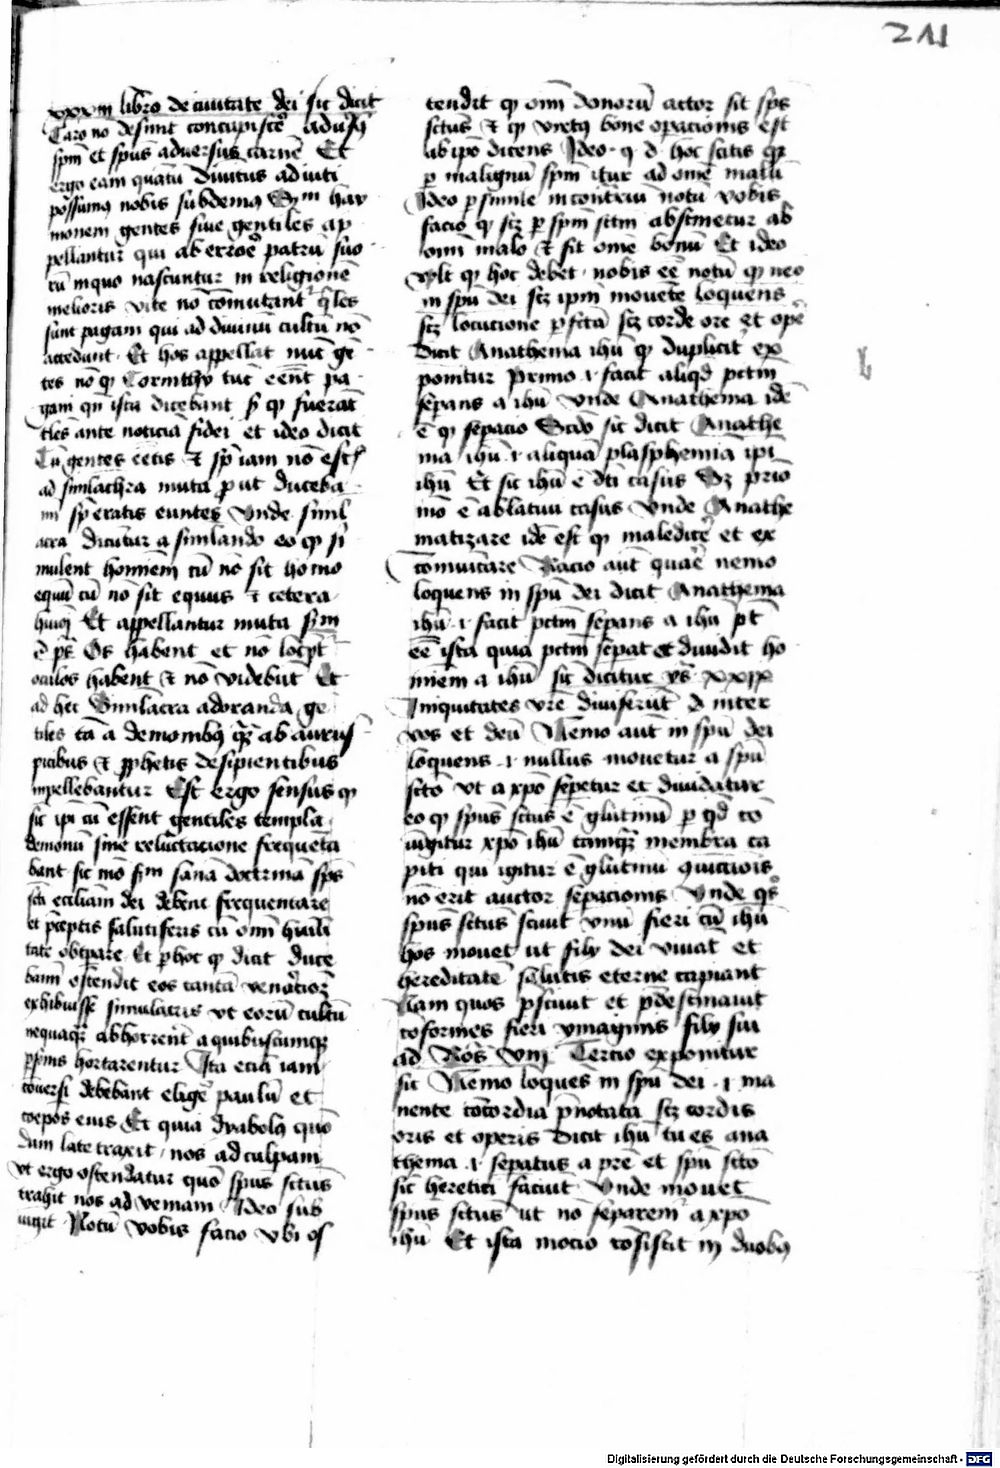 211
xxxiij libro de ciuitate dei sic dicit
Caro nō desinit concupiscē adūsꝰ
spm̄ et spūs aduersus carnē Et
ergo eam quātū diuitus adiuti
possumꝰ nobis subdemꝰ Scm̄ hay
monem gentes siue gentiles ap
pellantur qui ab erroē patrū suo
rū in quo nascuntur in religionē
melioris vite nō cōmutant᷑
sunt pagani qui ad diuinū cultū nō
accedunt Et hos appellat nūc gē
tes nō qꝫ Corinthij tūc eēnt pa
gani qn̄ ista dicebant sꝫ qꝫ fuerāt
tles ante noticiā fidei et ideo dicit
Cū gentes eētis ⁊ sp iam nō est
ad simlachra muta prout duceba
mi speratis euntes Vnde siml
acra dicūtur a similando eo qꝫ si
mulent hominem cū nō sit homo
equū cū nō sit equus ⁊ cetera
huiꝰ Et appellantur muta scm̄
ps Os habent et nō loqnt᷑
oculos habent ⁊ nō videbūt Et
ad hec Simlacra adoranda ge
tiles tā a demonibꝰ qꝫ ab aurus
picibus ⁊ pphetis desipientibus
inpellebantur Est ergo sensus qꝫ
sic ipi cū essent gentiles templa
demonū sine reluctacione frequēta
bant sic mō scm̄ sanā doctrinā spūs
sci eccliam dei debent frequentare
et pceptis salutiferis cū omī humili
tate obtpare Et p hoc qꝫ dicit duce
bam ostendit eos tantā
exhibuisse simulacris vt eorū cultū
nequaqꝫ abhorrent a quibuscumqꝫ
hortarentur Ita eciā iam
cōuersi debebant eligē paulū et
coepos eius Et quia dyabolꝰ quō
dam late traxit nos ad culpam
vt ergo ostendatur quō spūs sctūs
trahit nos ad veniam Ideo sub
iūgit Notū vobis facio vbi os
tendit qꝫ omī donorū actor sit spūs
sctūs ⁊ qꝫ virtꝰ bone opacionis est
ab ipo dicens Ideo q d hoc scitis qꝫ
p malignū spm̄ itur ad omē malū
Ideo p simile in cōtrariū notū vobis
facio qꝫ scꝫ p spm̄ sctm̄ abstinetur ab
omī malo ⁊ sit omē bonū Et ideo
vylt qꝫ hoc debet nobis eē notū qꝫ neo
in spū dei scꝫ ipm̄ mouēte loquens
scꝫ locucione pfctā scꝫ corde ore et opē
Dicit Anathema ihū qꝫ duplicit᷑ ex
ponitur Primo .i. facit aliqd pctm̄
sepans a ihū Vnde Anathema idē
ē qꝫ sepacio Scdō sic dicit Anathe
ma ihū .i. aliquā plasphemiā ipi
ihū Et sic ihū ē dti casus Sꝫ prio
mō ē ablatiui casus Vnde Anathe
matizare idē est qꝫ maledicē et ex
cōmuicare Racio aūt quaē nemo
loquens in spū dei dicit Anathema
ihū .i. facit pctm̄ sepans a ihū pt
eē ista quia pctm̄ sepat et diuidit ho
minem a ihū sic dicitur ys xxxix
Iniquitates vrē diuiserūt inter
vos et deū Nemo aūt in spū dei
loquens .i. nullus mouetur a spū
sctō vt a xpō sepetur et diuidatur
eo qꝫ spūs sctūs ē glutinū p qd cō
iūgitur xpō ihū tamqꝫ membra ca
piti qui igitur ē glutinū
nō erit auctor sepacionis Vnde qs
spūs sctūs sciuit vnū fieri cū ihū
hos mouet ut filij dei viuāt et
hereditatē salutis eterne capiant
Nam quos psciuit et pdestinauit
cōformes fieri ymaginis filij sui
ad Rōs viij Tercio exponitur
sic Nemo loquēs in spū dei .i. ma
nente cōcordia pnotata scꝫ cordis
oris et operis Dicit ihū tu es ana
thema .i. sepatus a prē et spū sctō
sic heretici faciūt Vnde mouet
spūs sctūs ut nō separem᷑ a xpō
ihū Et ista mocio cōsistit in duobꝰ
Digitalisierung gefördert durch die Deutsche Forschungsgemeinschaft - DFG